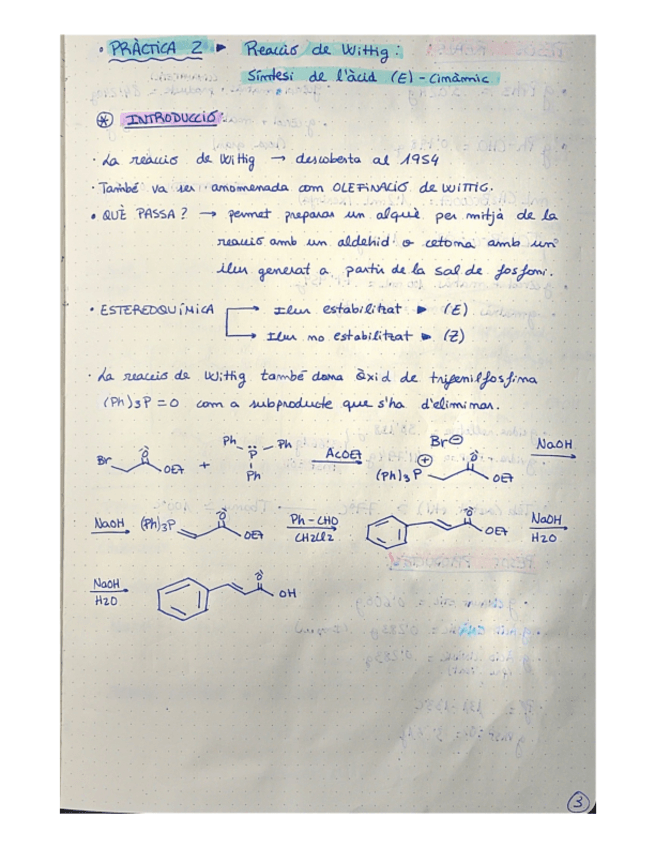 • PRÀCTICA 2 ► Reacció de Wittig:
Síntesi de l'àcid (E)-Cinàmic
* INTRODUCCIÓ:
· La reacció de Wittig → descoberta al 1954
· També va ser anomenada com OLEFINACIÓ de WITTIG.
• QUÈ PASSA? → permet preparar un alquè per mitjà de la
reacció amb un aldehid o cetona amb un
ilur generat a partir de la sal de fosfoni.
· ESTEREOQUÍMICA → Ilur estabilitzat ► (E)
→ Ilur no estabilitzat ► (Z)
· La reacció de Wittig també dona Òxid de trifenilfosfina
(Ph)3P=O com a subproducte que s'ha d'eliminar.
Br O OEt + Ph P Ph Ph AcOEt Br⊖ (Ph)3P ⊕ O OEt NaOH
NaOH (Ph)3P O OEt Ph-CHO CH2Cl2 O OEt NaOH H2O
NaOH H2O O OH
3